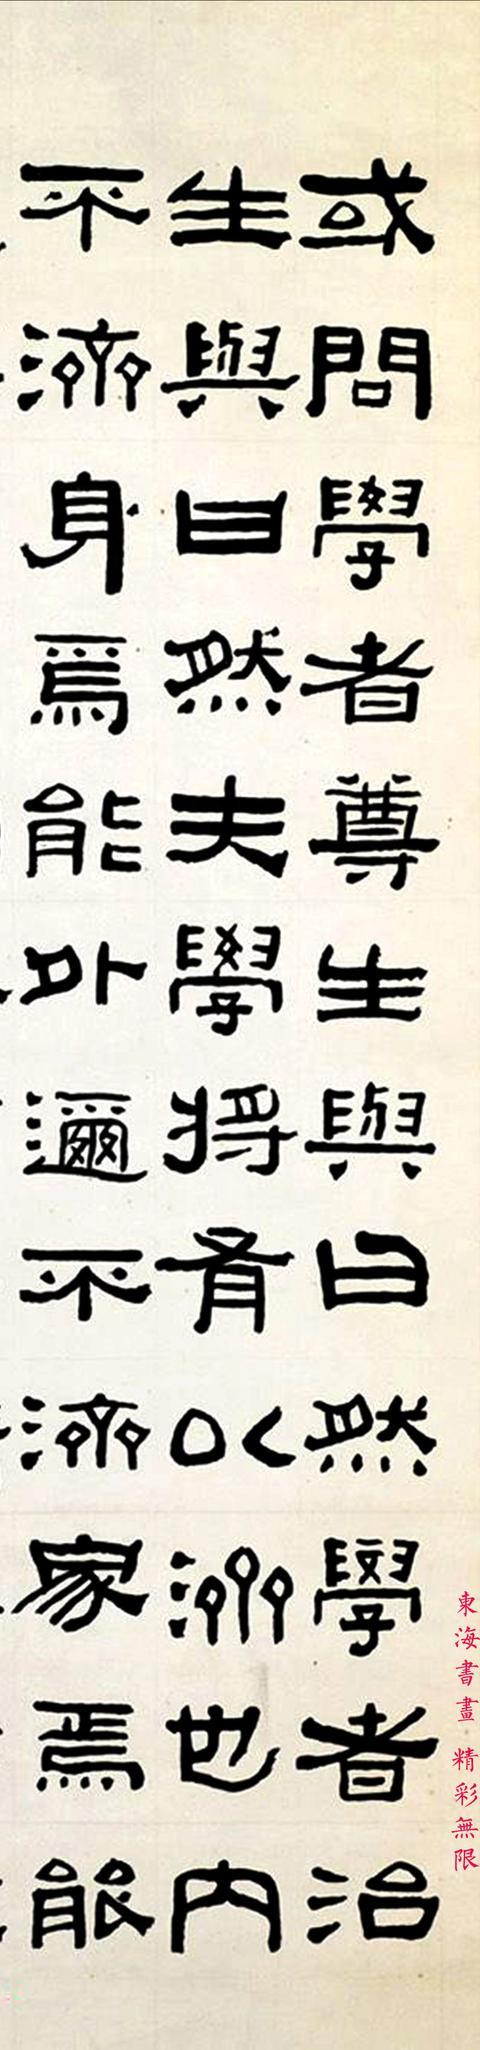 或問學者尊生與曰然學者治
生與曰然夫學將有以濟也內
不濟身焉能外邇不濟家焉能
東海書畫 精彩無限